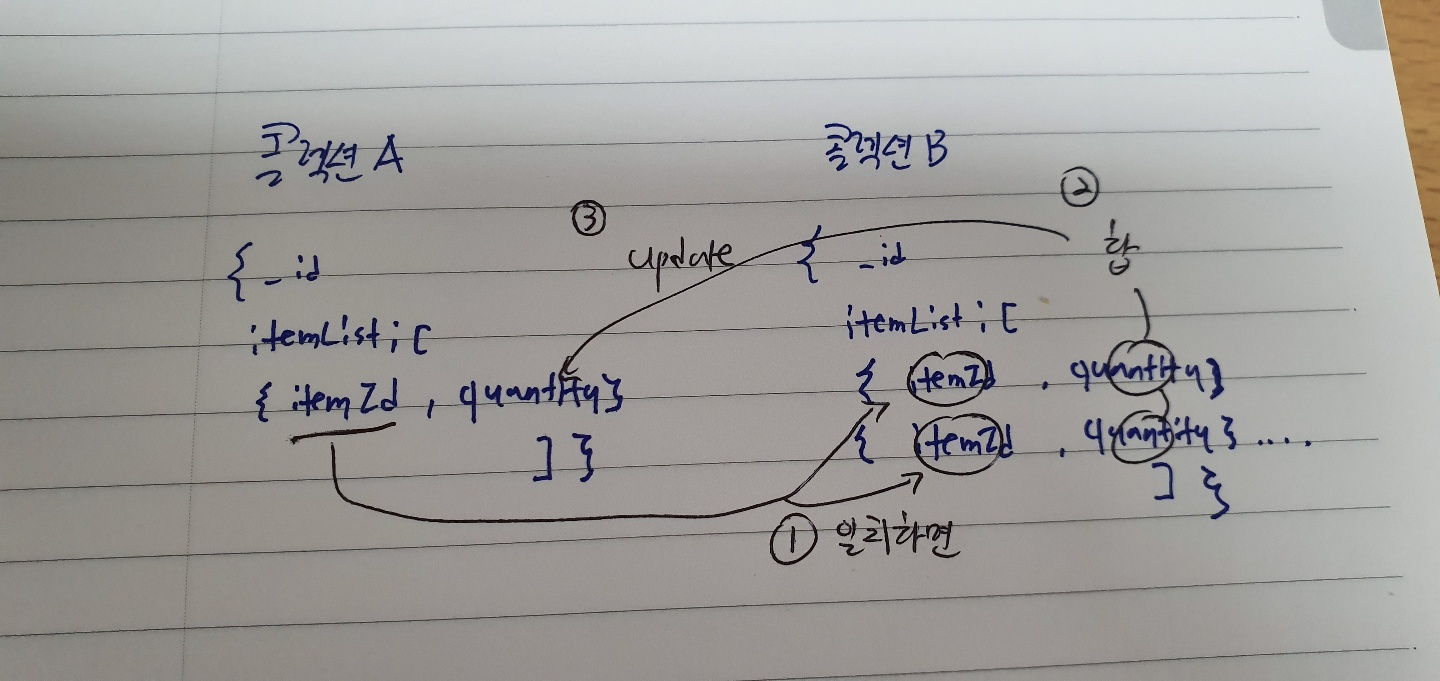 콜렉션 A
콜렉션 B
②
③
합
update
{ _id
{ _id
itemList : [
itemList : [
{ itemId , quantity }
{ itemId , quantity }
{ itemId , quantity } ....
] }
] }
① 일치하면